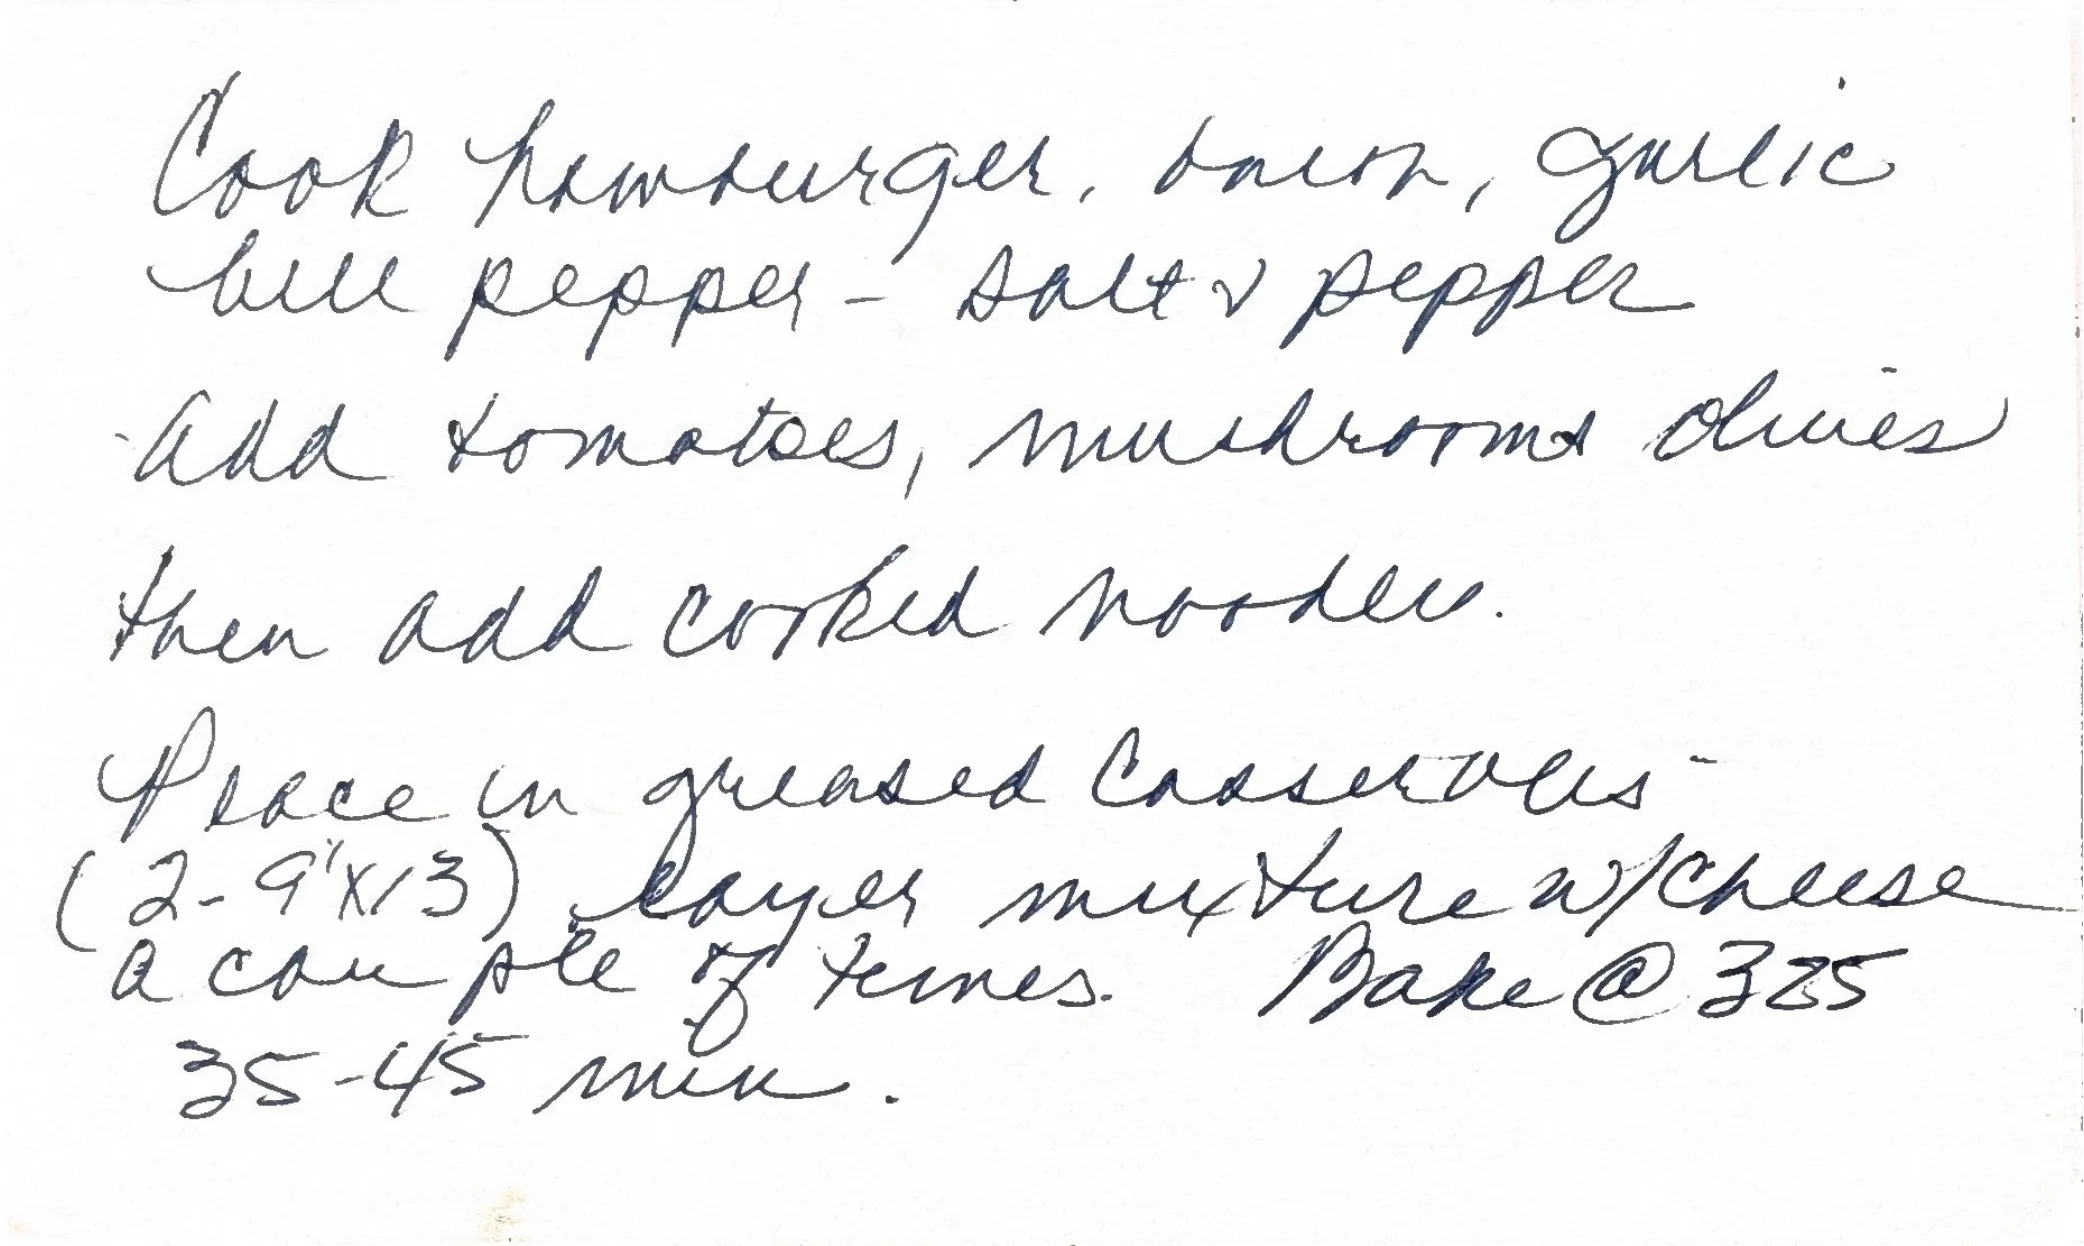 Cook hamburger, bacon, garlic
bell pepper - salt & pepper
Add tomatoes, mushrooms olives
then add cooked noodles.
Place in greased casseroles -
(2-9"x13) layer mixture w/cheese
a couple of times. Bake @ 325
35-45 min.